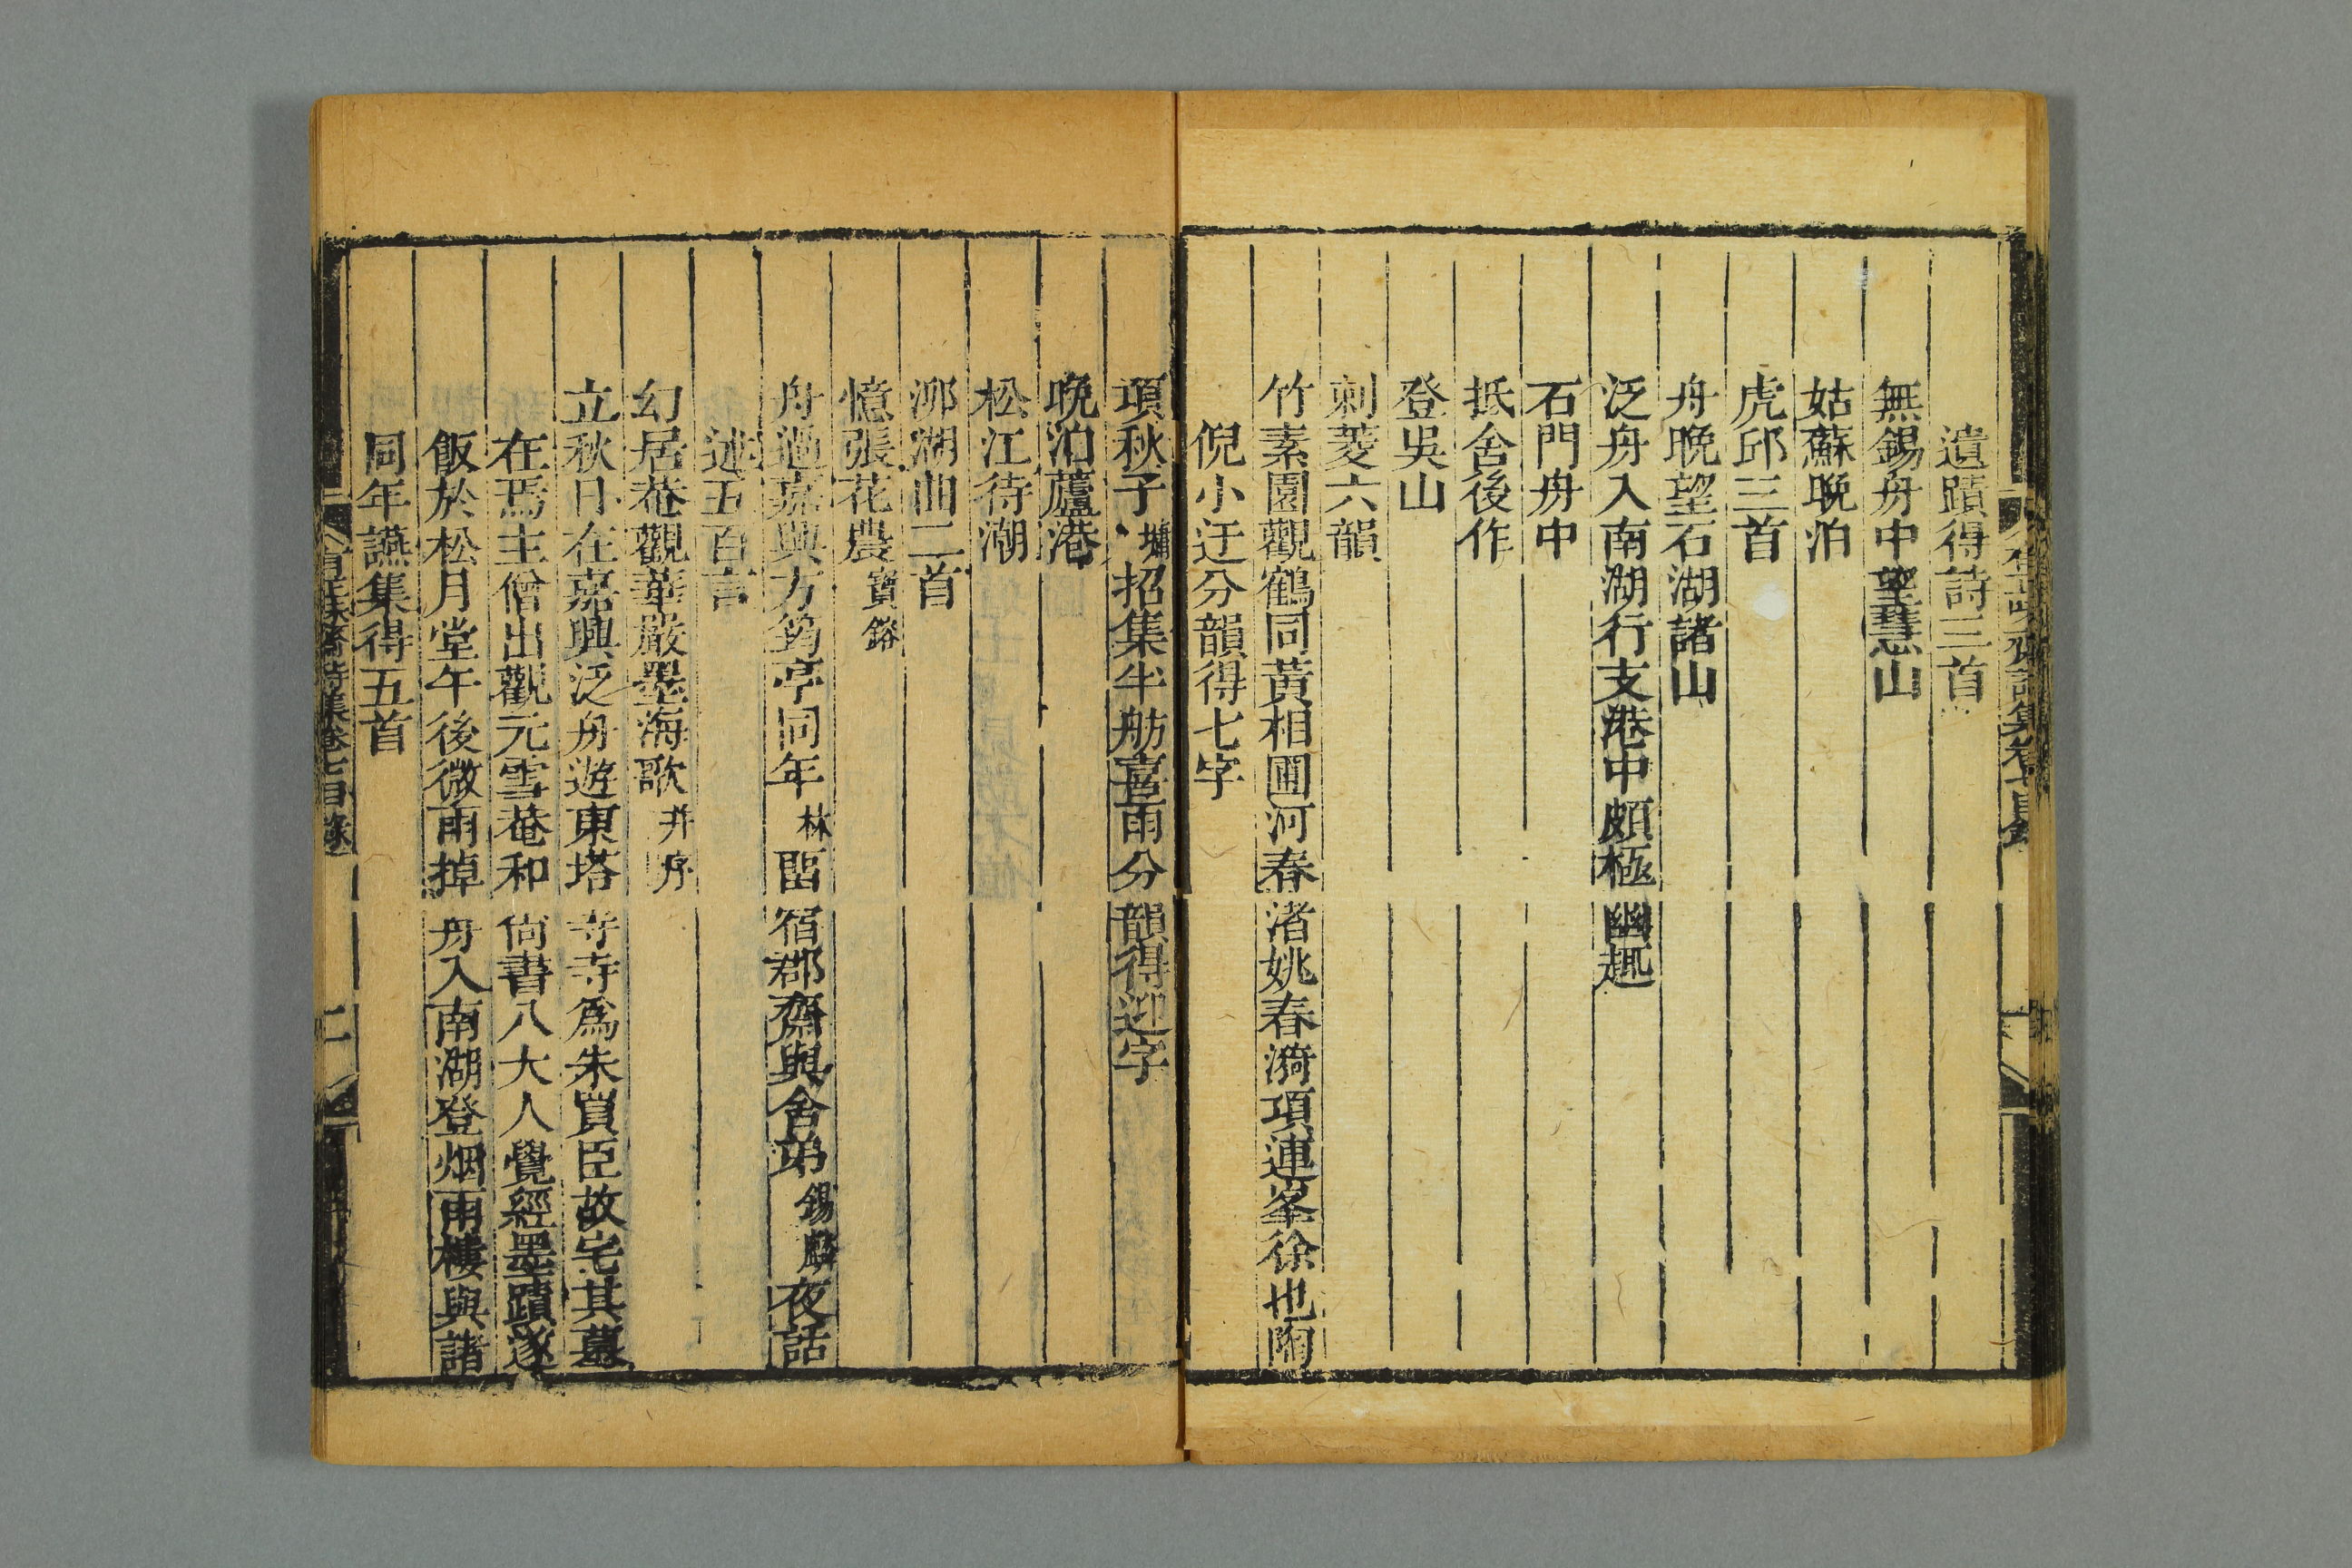 遺蹟得詩三首
無錫舟中望慧山
姑蘇晚泊
虎邱三首
舟晚望石湖諸山
泛舟入南湖行支港中頗極幽趣
石門舟中
抵舍後作
登吳山
刺菱六韻
竹素園觀鶴同黃相圃河春渚姚春漪項連峯徐也陶
倪小迂分韻得七字
項秋子墉招集半舫喜雨分韻得迎字
晚泊蘆港
松江待潮
泖湖曲二首
憶張花農寶鎔
舟過嘉興方鈞亭同年林留宿郡齋與舍弟錫麟夜話
述五百言
幻居菴觀華嚴墨海歌并序
立秋日在嘉興泛舟遊東塔寺寺爲朱買臣故宅其墓
在焉主僧出觀元雪菴和尚書八大人覺經墨蹟遂
飯於松月堂午後微雨掉舟入南湖登烟雨樓與諸
同年讌集得五首
有正味齋詩集卷七目錄
二